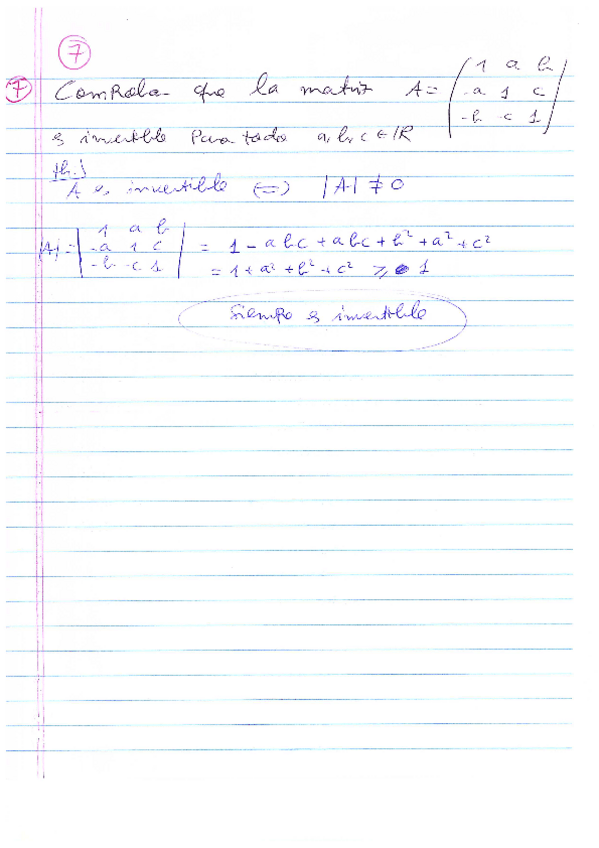 7
7 Comproba- que la matriz A= ( 1 a b
-a 1 c
-b -c 1 )
es invertible Para todo a, b, c ∈ IR
th.)
A es invertible <=> |A| ≠ 0
|A| = | 1 a b
-a 1 c
-b -c 1 | = 1 - abc + abc + b² + a² + c²
= 1 + a² + b² + c² ≥ 1
Siempre es invertible